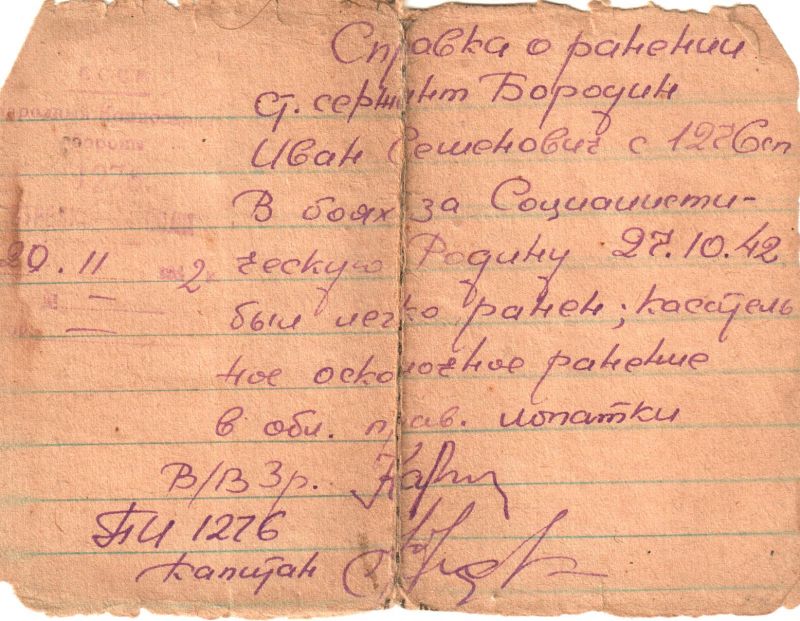 Справка о ранении
ст. сержант Бородин
Иван Семенович с 1276сп
В боях за Социалисти-
ческую Родину 27.10.42
был легко ранен; касатель
ное осколочное ранение
в обл. прав. лопатки
В/В 3р.
ПИ 1276
капитан
СССР
1276
20.11 2